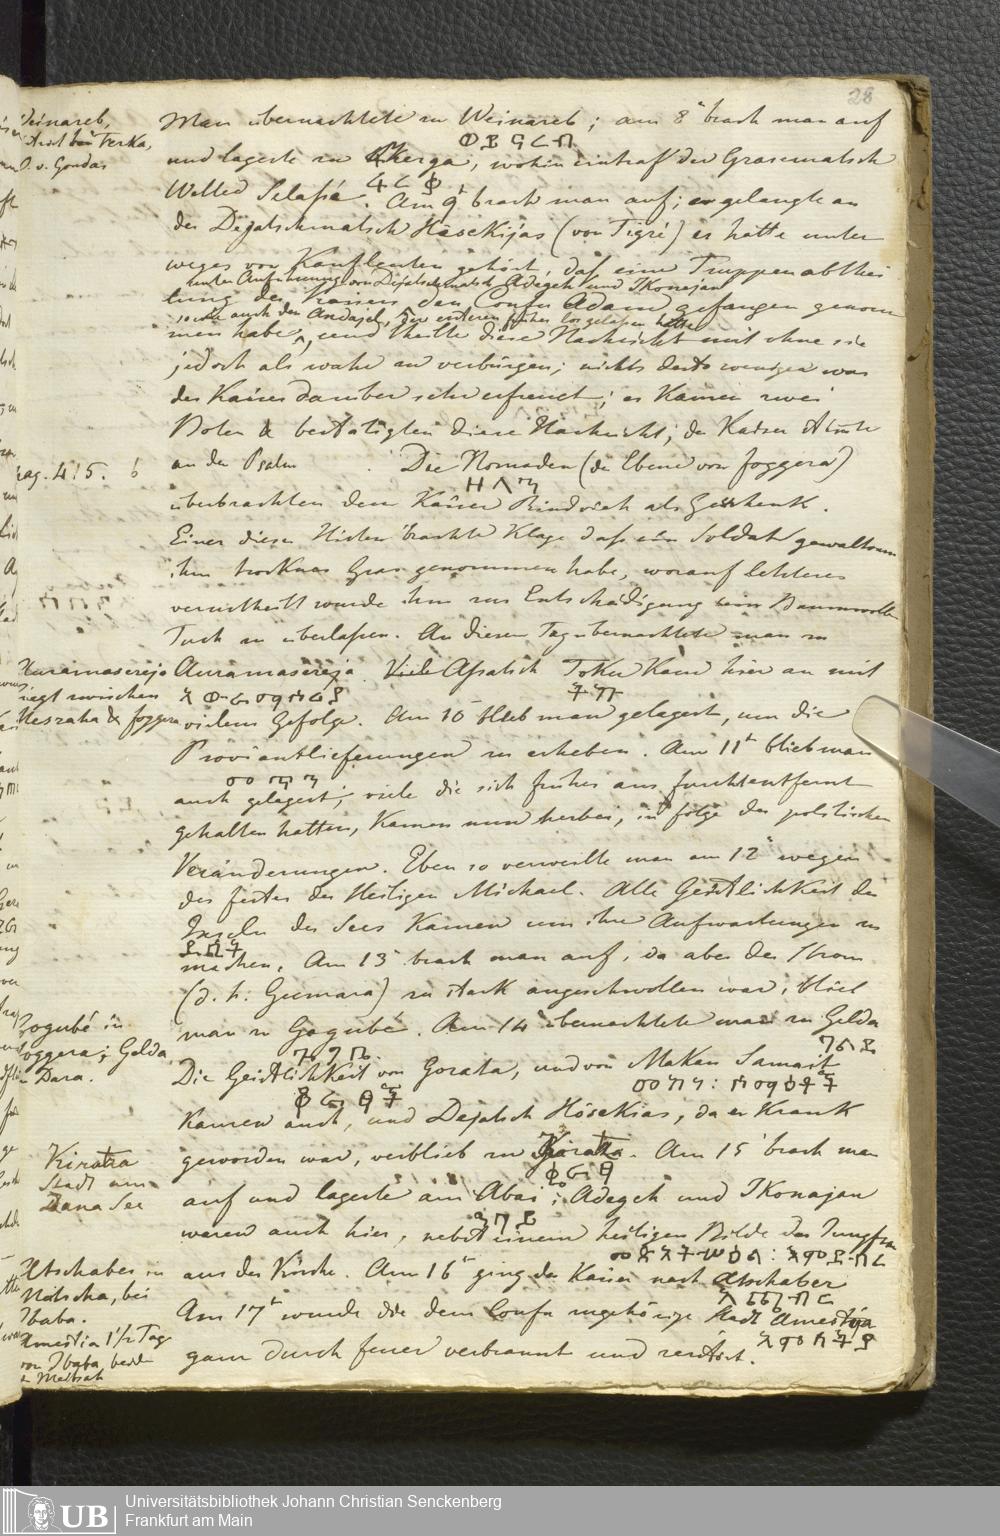 28
Weinareb,
Terka,
v. Gondar
Man übernachtete zu Weinareb; am 8n brach man auf
ወይናረብ
und lagerte zu Tscherga, wohin eintraf der Grasmatsch
ጨረቃ
Welled Selasié. Am 9n brach man auf; er gelangte an
der Dejatschmatsch Hasekijas (von Tigré) er hatte unter
weges von Kaufleuten gehört, daß eine Truppenabthei
unter Anführung von Dejatschmatsch Adegeh und Ikonajan
lung des Kaisers den Confu Adam gefangen genom
sowie auch den Andajel, der früher losgelassen hatte
men habe, und theilte diese Nachricht mit ohne sie
jedoch als wahr zu verbürgen; nichts desto weniger war
der Kaiser darüber sehr erfreuet; es kamen zwei
Boten & bestätigten diese Nachricht; der Kaiser
pag. 415. 6
an der Psalm . Die Nomaden (der Ebene von Foggera)
ዘላን
überbrachten dem Kaiser Rindvieh als Geschenk.
Einer dieser Hirten brachte Klage daß ein Soldat gewaltsam
ihm trocknes Gras genommen habe, worauf letzterer
verurtheilt wurde ihm zur Entschädigung sein Baumwollen
Tuch zu überlassen. An diesem Tag übernachtete man zu
Auramasereja
liegt zwischen
& Foggera
Auramasereja. Viele Assalsch Toku kam hier an mit
አውራመሰርያ
vielem Gefolge. Am 10 blieb man gelagert, um die
Proviantlieferungen zu erheben. Am 11n blieb man
auch gelagert; viele die sich früher aus furcht entfernt
gehalten hatten, kamen nun herbei, in folge der politischen
Veränderungen. Eben so verweilte man am 12n wegen
des festes des Heiligen Michael. Alle Geistlichkeit der
Inseln des Sees kamen um ihre Aufwartungen zu
ደሴት
machen. Am 13n brach man auf, da aber der Strom
(d. h. Gumara) zu stark angeschwollen war, blieb
Gogubé in
Foggera; Gelda
in Dara.
man zu Gogubé. Am 14n übernachtete man zu Gelda
ጎጉቤ
ገልዳ
Die Geistlichkeit von Gorata, und von Makan Samait
መካን: ሰማዕት
kamen auch, und Dejatsch Hösekias, da er krank
geworden war, verblieb zu Koratta. Am 15n brach man
Kiratza
Stadt am
Dana See
ቆራጣ
auf und lagerte am Abai; Adegeh und Ikonajan
አባይ
waren auch hier, nebst einem heiligen Bilde der Jungfrau
aus der Kirche. Am 16n ging der Kaiser nach Atschaber
Atschaber in
Ibaba.
Amestia 1½ Tag
von Ibaba, beide
Am 17n wurde die dem Confu zugehörige Stadt Amestija
ganz durch feuer verbrannt und zerstört.
Universitätsbibliothek Johann Christian Senckenberg
Frankfurt am Main
UB